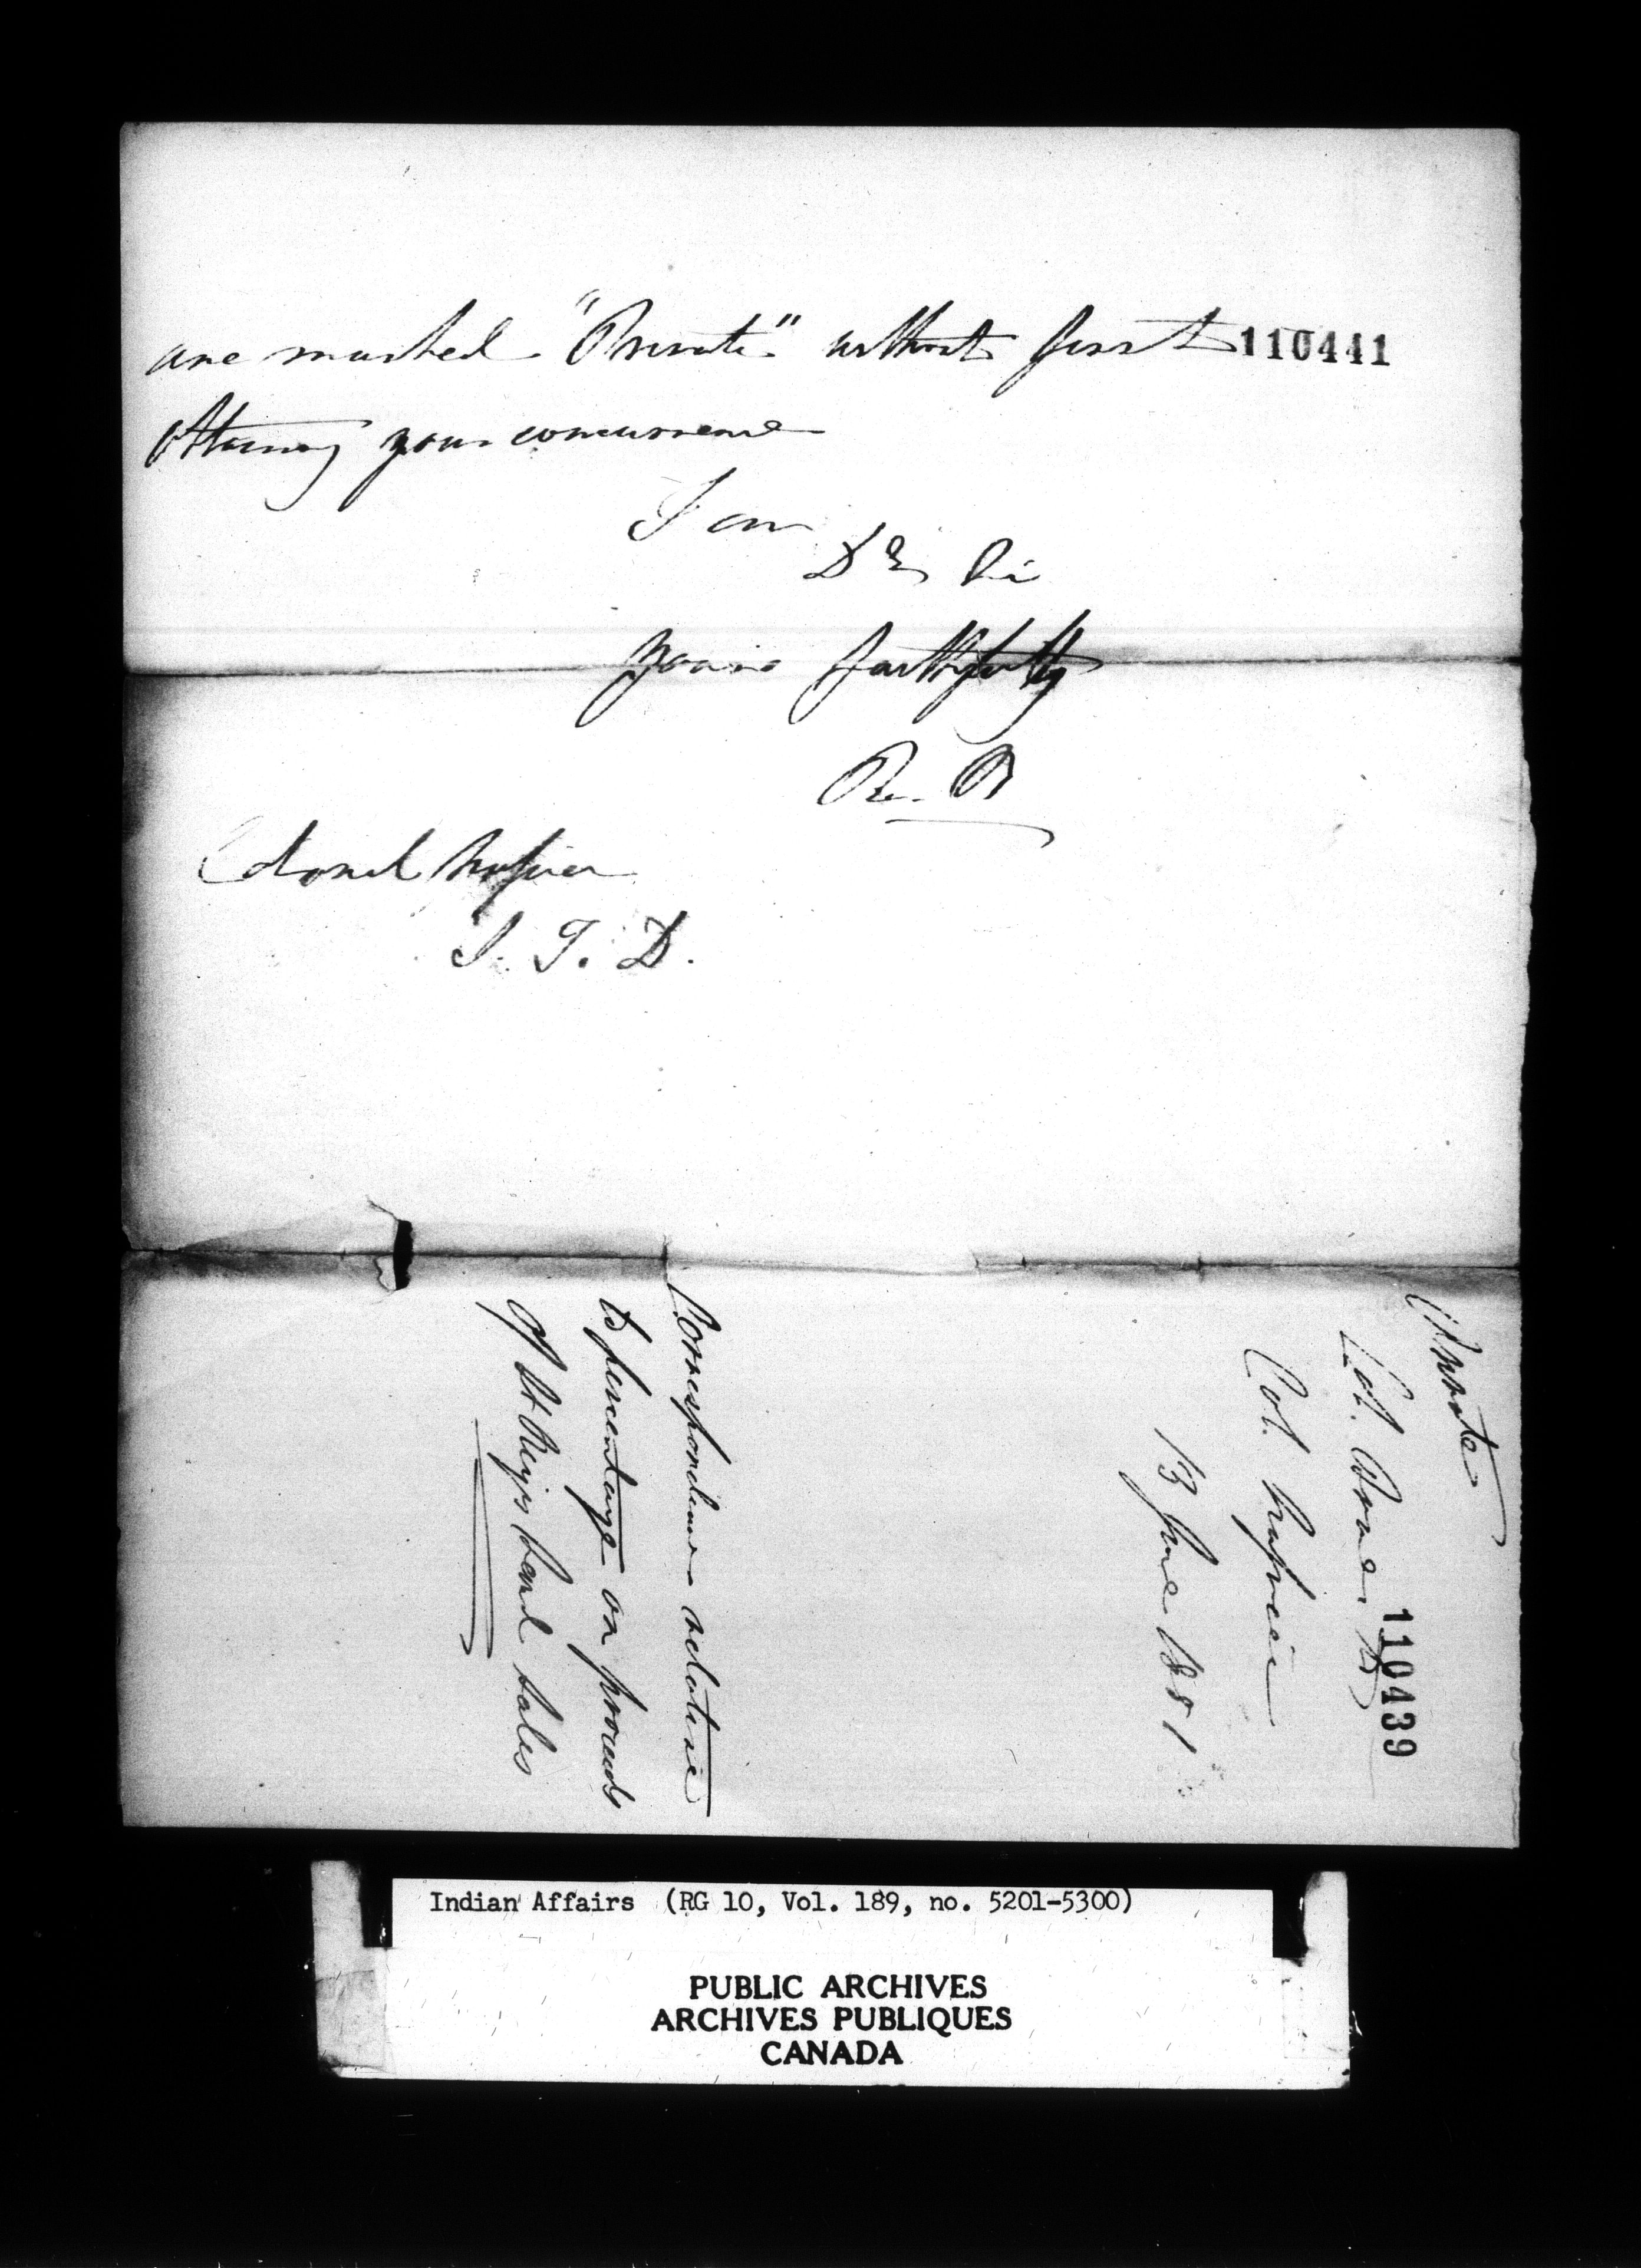 are marked "Private" without first 110441
obtaining your concurrence
I am
Dr Sir
yours faithfully
R. B
Colonel Napier
S. I. D.
Private
Col. Napier
13 June 1851
110439
Correspondence relative
to percentage on proceeds
of St Regis land sales
Indian Affairs (RG 10, Vol. 189, no. 5201-5300)
PUBLIC ARCHIVES
ARCHIVES PUBLIQUES
CANADA